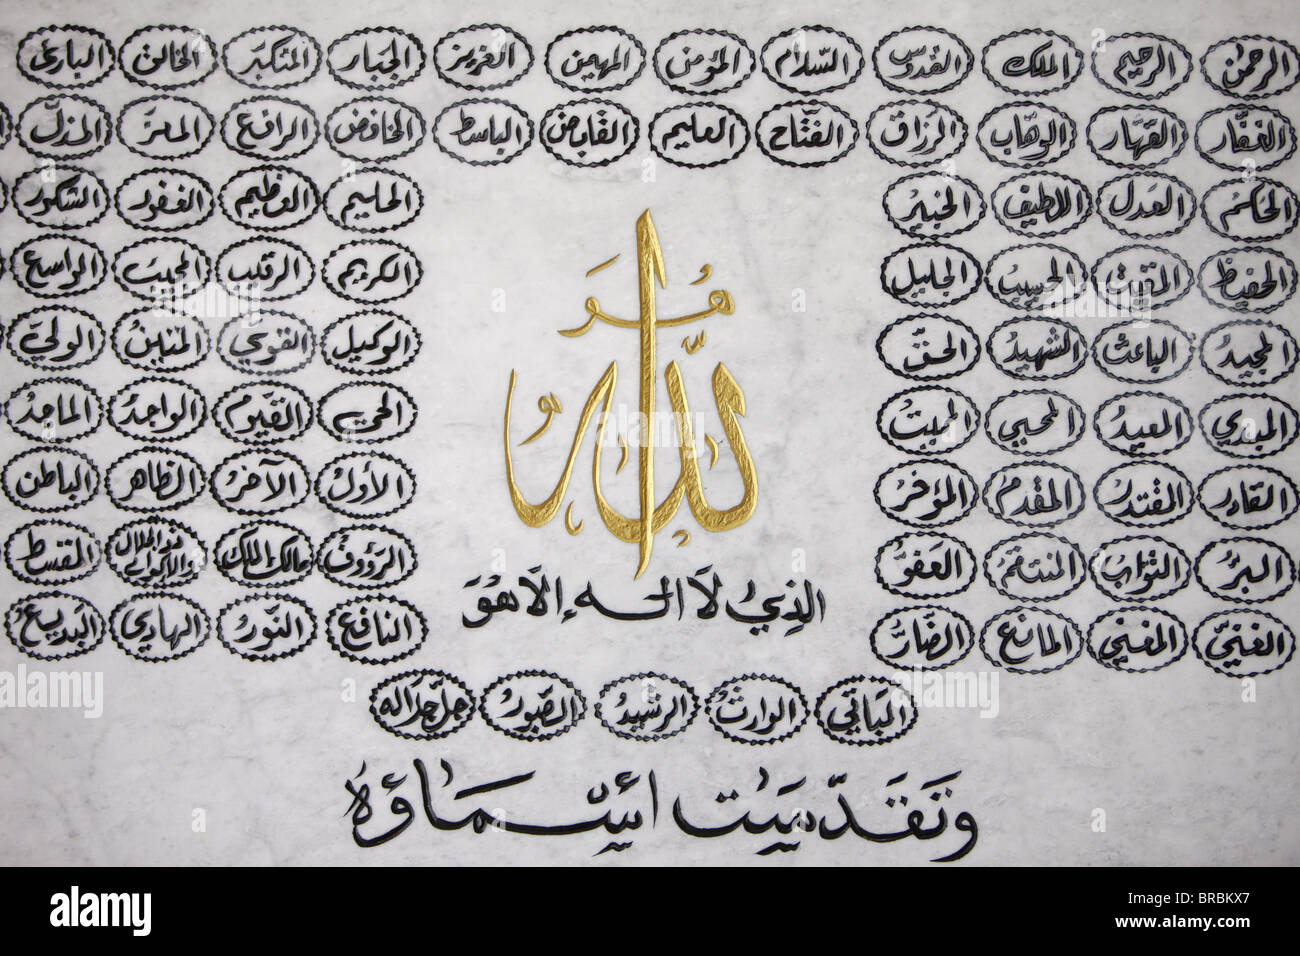 الرحمن الرحيم الملك القدوس السّلام المؤمن المهيمن العزيز الجبار المتكبّر الخالق البارئ
الغفّار القهّار الوهّاب الرزاق الفتّاح العليم القابض الباسط الخافض الرافع المعزّ المذلّ
الحكم العدل اللطيف الخبير الحليم العظيم الغفور الشكور
الحفيظ المقيت الحسيب الجليل الكريم الرقيب المجيب الواسع
المجيد الباعث الشهيد الحقّ الوكيل القوي المتين الوليّ
المبدي المعيد المحيي المميت الحي القيوم الواجد الماجد
القادر المقتدر المقدم المؤخر الأول الآخر الظاهر الباطن
البرّ التواب المنتقم العفوّ الرؤوف مالك الملك ذو الجلال والاكرام المقسط
الغنيّ المغني المانع الضارّ النافع النّور الهادي البديع
هو الله
الذي لا اله الا هو
الباقي الوارث الرشيد الصّبور جل جلاله
وتقدّست أسماؤه
alamy
Image ID: BRBKX7
www.alamy.com